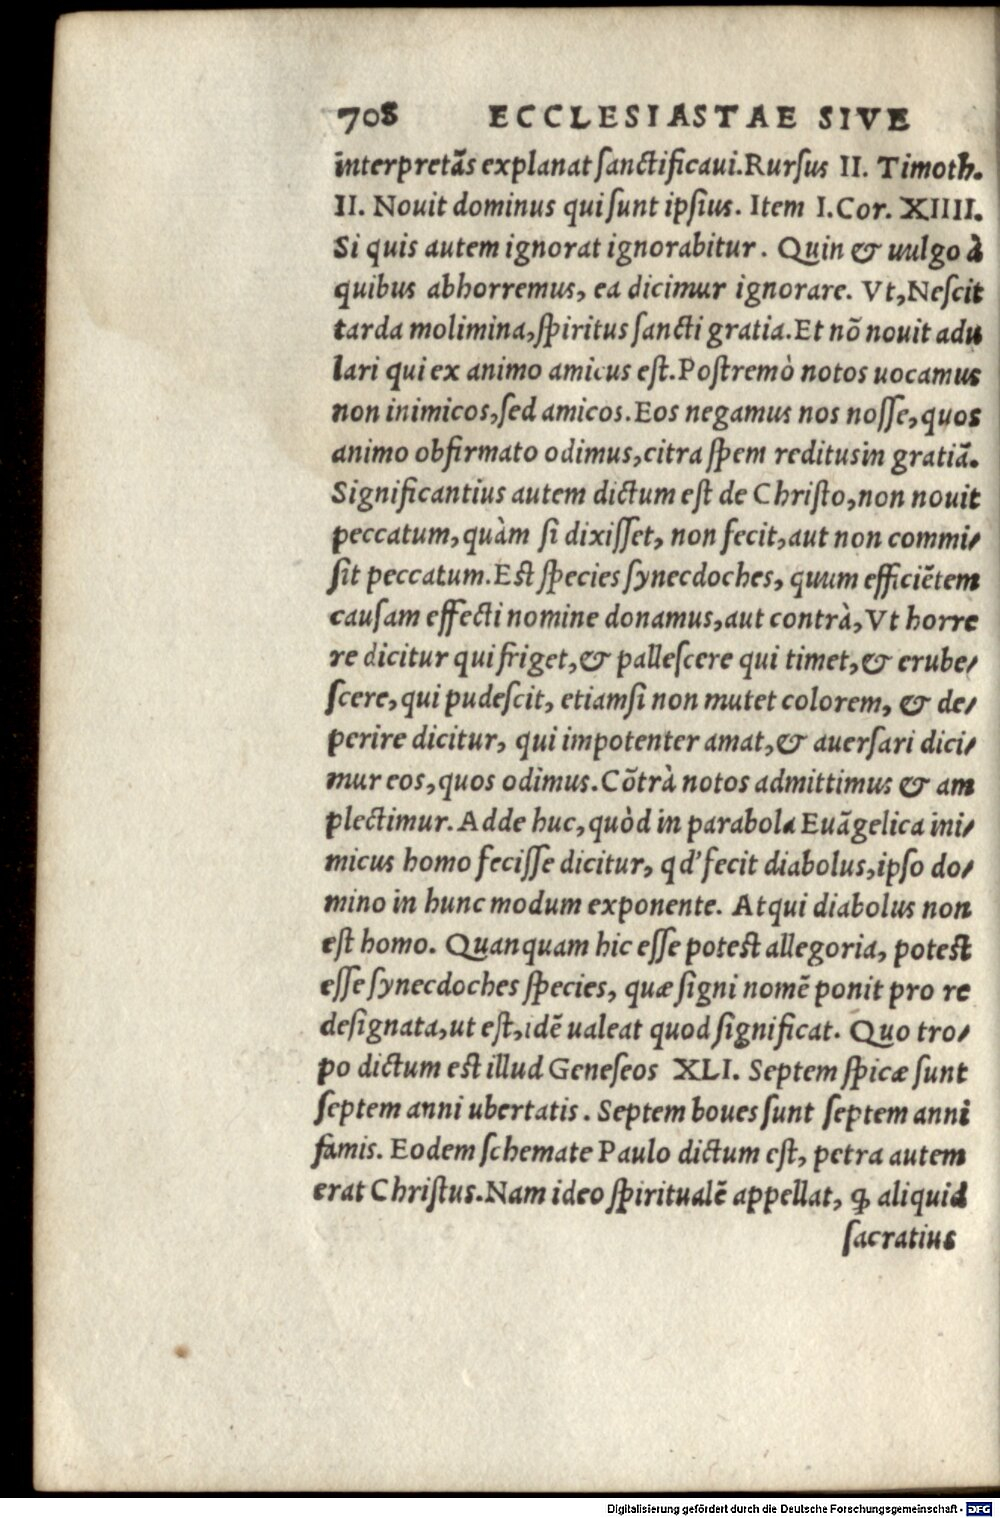 708 ECCLESIASTAE SIVE
interpretãs explanat ſanctificaui.Rurſus II. Timoth.
II. Nouit dominus qui ſunt ipſius. Item I.Cor. XIIII.
Si quis autem ignorat ignorabitur. Quin & uulgo à
quibus abhorremus, ea dicimur ignorare. Vt,Neſcit
tarda molimina,ſpiritus ſancti gratia.Et nõ nouit adu
lari qui ex animo amicus eſt.Poſtremò notos uocamus
non inimicos,ſed amicos.Eos negamus nos noſſe,quos
animo obfirmato odimus,citra ſpem reditusin gratiã.
Significantius autem dictum eſt de Chriſto,non nouit
peccatum,quàm ſi dixiſſet, non fecit,aut non commi/
ſit peccatum.Eſt ſpecies ſynecdoches, quum efficiẽtem
cauſam effecti nomine donamus,aut contrà,Vt horre
re dicitur qui friget,& palleſcere qui timet,& erube/
ſcere,qui pudeſcit, etiamſi non mutet colorem, & de/
perire dicitur, qui impotenter amat,& auerſari dici/
mur eos,quos odimus.Cõtrà notos admittimus & am
plectimur.Adde huc,quòd in parabola Euãgelica ini/
micus homo feciſſe dicitur, qd' fecit diabolus,ipſo do/
mino in hunc modum exponente. Atqui diabolus non
eſt homo. Quanquam hic eſſe poteſt allegoria, poteſt
eſſe ſynecdoches ſpecies, quæ ſigni nomẽ ponit pro re
deſignata,ut eſt,idẽ ualeat quod ſignificat. Quo tro/
po dictum eſt illud Geneſeos XLI. Septem ſpicæ ſunt
ſeptem anni ubertatis. Septem boues ſunt ſeptem anni
famis. Eodem ſchemate Paulo dictum eſt, petra autem
erat Chriſtus.Nam ideo ſpiritualẽ appellat, ꝙ aliquid
ſacratius
Digitalisierung gefördert durch die Deutsche Forschungsgemeinschaft - DFG